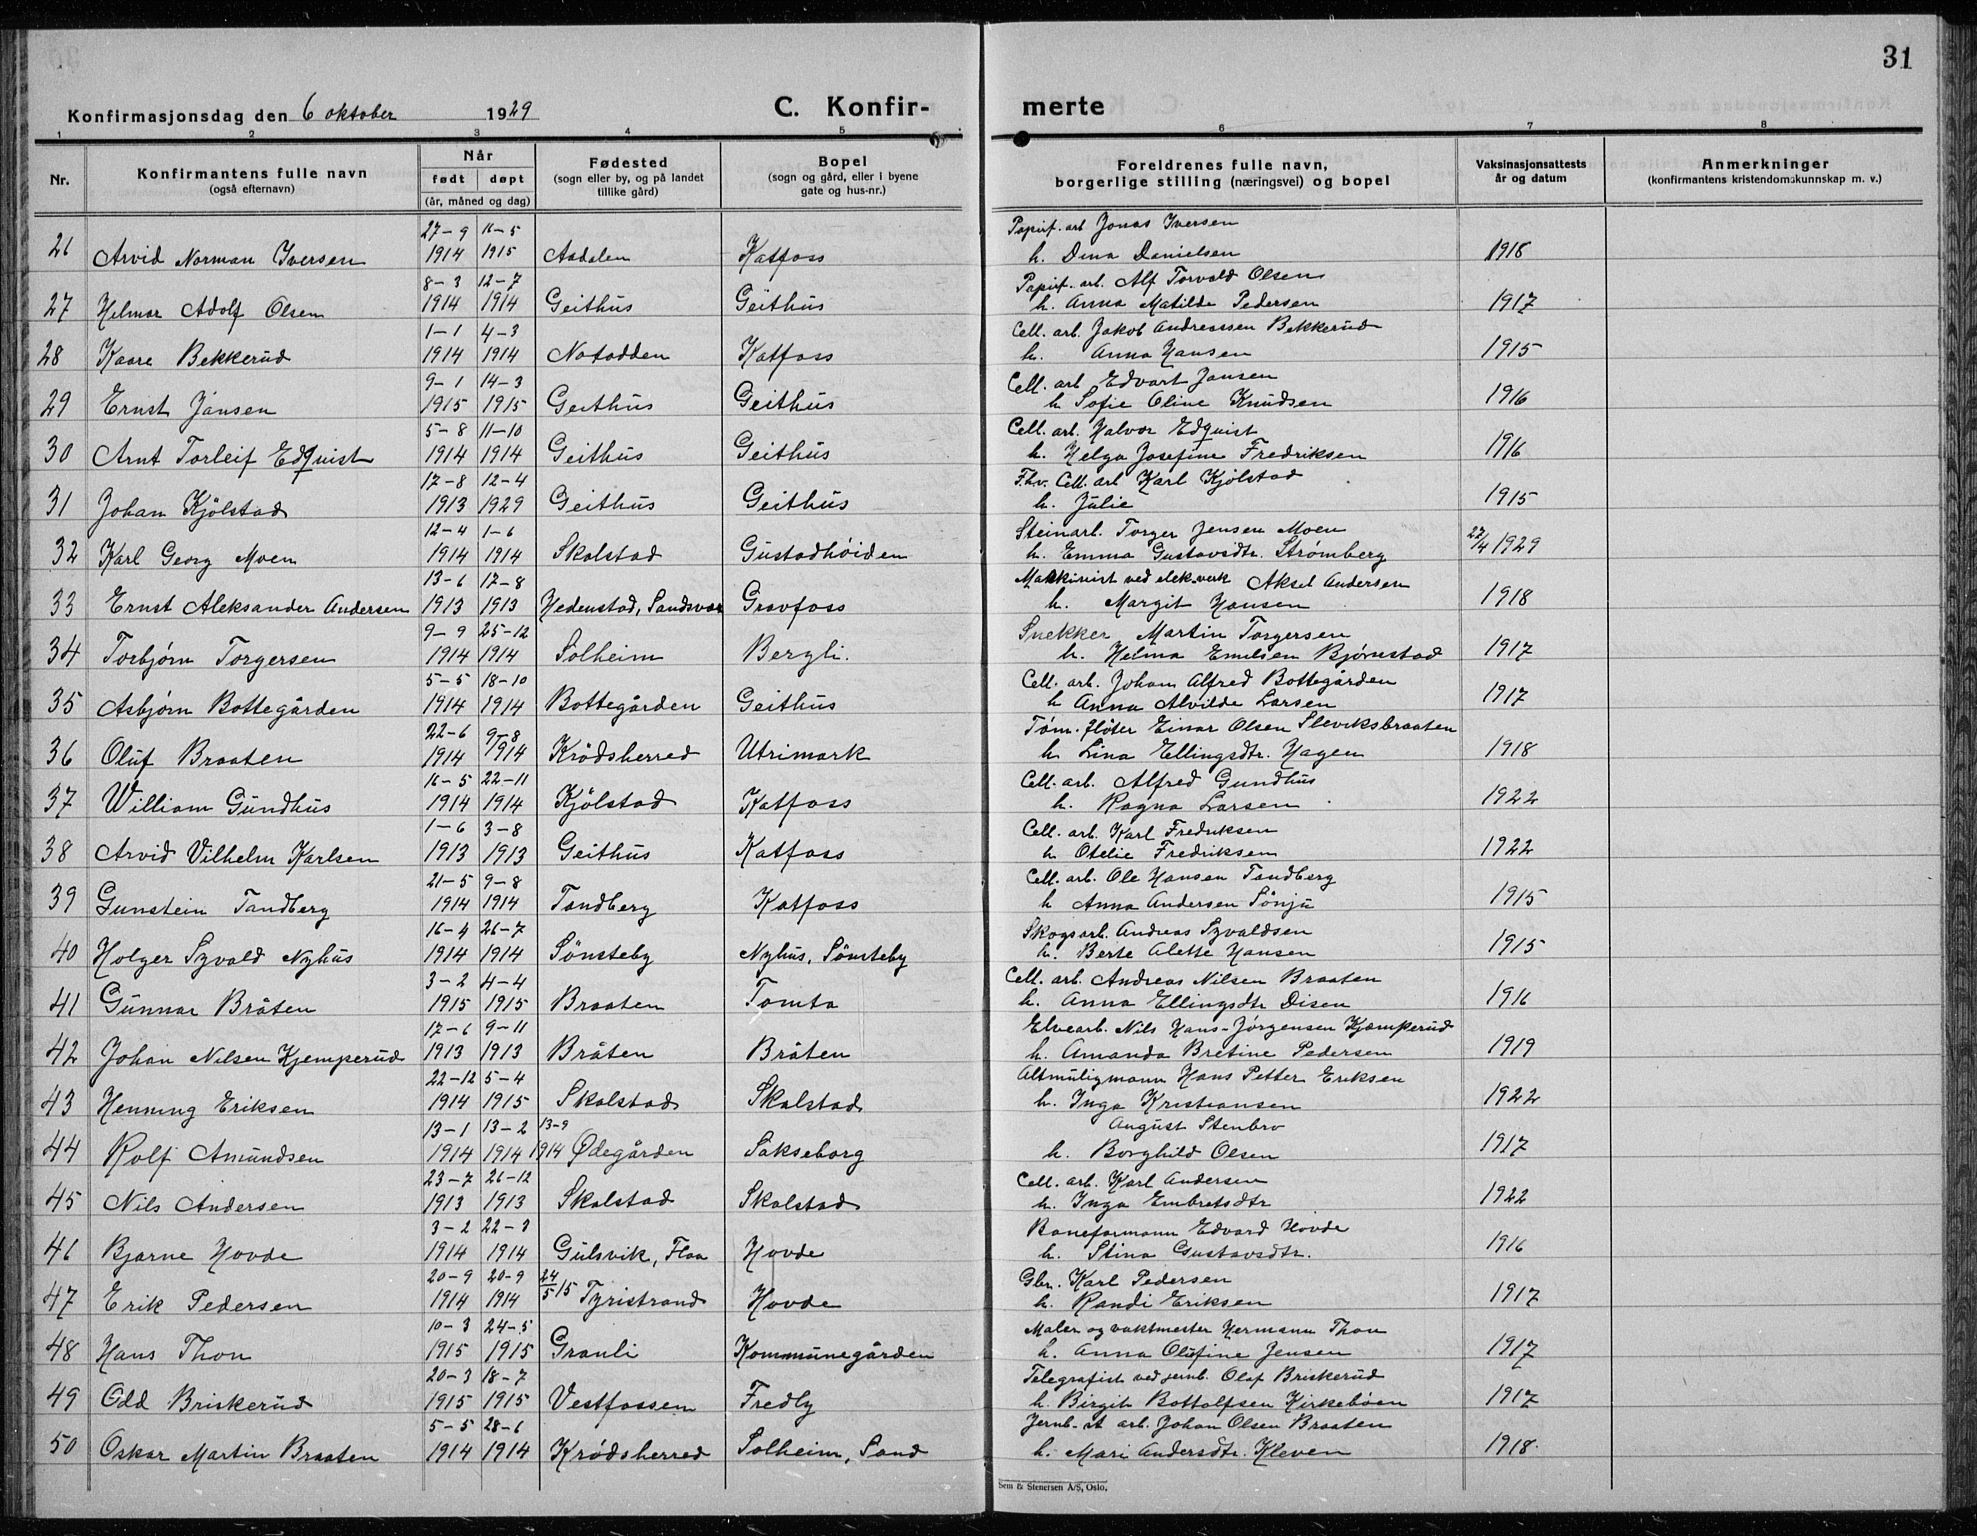 31
Konfirmasjonsdag den 6 oktober 1929
C. Konfir-
merte
1 2 3 4 5 6 7 8
Nr.
Konfirmantens fulle navn
(også efternavn)
Når
født døpt
(år, måned og dag)
Fødested
(sogn eller by, og på landet
tillike gård)
Bopel
(sogn og gård, eller i byene
gate og hus-nr.)
Foreldrenes fulle navn,
borgerlige stilling (næringsvei) og bopel
Vaksinasjonsattests
år og datum
Anmerkninger
(konfirmantens kristendomskunnskap m. v.)
27-9 11-5 Papirf. arb Jonas Iversen
26 Arvid Norman Iversen 1914 1915 Aadalen Katfoss h. Dina Danielsen 1918
8-3 12-7 Papirf. arb. Alf Torvald Olsen
27 Helmar Adolf Olsen 1914 1914 Geithus Geithus h. Anna Matilde Pedersen 1917
1-1 4-3 Cell. arb. Jakob Andreassen Bekkerud
28 Kaare Bekkerud 1914 1914 Notodden Katfoss h. Anna Hansen 1915
9-1 14-3 Cell. arb Edvart Jansen
29 Ernst Jansen 1915 1915 Geithus Geithus h Sofie Oline Knudsen 1916
5-8 11-10 Cell. arb. Halvor Edquist
30 Arnt Torleif Edquist 1914 1914 Geithus Geithus h. Helga Josefine Fredriksen 1916
17-8 12-4 F.hv. Cell. arb Karl Kjölstad
31 Johan Kjölstad 1913 1929 Geithus Geithus h. Julie 1915
12-4 1-6 Steinarb. Torger Jensen Moen
32 Karl Georg Moen 1914 1914 Skalstad Gustadhöiden h. Emma Gustavsdtr. Strømberg 22/4 1929
13-6 17-8 Maskinist ved elek.verk Aksel Andersen
33 Ernst Aleksander Andersen 1913 1913 Hedenstad, Sandsvær Gravfoss h. Margit Hansen 1918
9-9 25-12 Snekker Martin Torgersen
34 Torbjørn Torgersen 1914 1914 Solheim Bergli. h. Helma Emilsen Bjørnstad 1917
5-5 18-10 Cell. arb. Johan Alfred Bottegården
35 Asbjørn Bottegården 1914 1914 Bottegården Geithus h Anna Alvilde Larsen 1917
22-6 9-8 Tøm. fløter Einar Olsen Sleviksbraaten
36 Oluf Braaten 1914 1914 Krödsherred Utrimark h Lina Ellingsdtr. Hagen 1918
16-5 22-11 Cell. arb. Alfred Gundhus
37 William Gundhus 1914 1914 Kjölstad Katfoss h. Ragna Larsen 1922
1-6 3-8 Cell. arb. Karl Fredriksen
38 Arvid Vilhelm Karlsen 1913 1913 Geithus Katfoss h Otelie Fredriksen 1922
21-5 9-8 Cell. arb. Ole Hansen Tandberg
39 Gunstein Tandberg 1914 1914 Tandberg Katfoss h Anna Andersen Sönju 1915
16-4 26-7 Skogsarb. Andreas Syvaldsen
40 Holger Syvald Nyhus 1914 1914 Sönsteby Nyhus, Sönsteby h. Berte Alette Hansen 1915
3-2 4-4 Cell. arb. Andreas Nilsen Braaten
41 Gunnar Bråten 1915 1915 Braaten Tomta h. Anna Ellingsdtr Disen 1916
17-6 9-11 Elvearb. Nils Hans-Jörgensen Kjæmperud
42 Johan Nilsen Kjemperud 1913 1913 Bråten Bråten h. Amanda Bretine Pedersen 1919
22-12 5-4 Altmuligmann Hans Petter Eriksen
43 Henning Eriksen 1914 1915 Skalstad Skalstad h. Inga Kristiansen 1922
13-1 13-2 13-9 August Stenbro
44 Rolf Amundsen 1914 1914 1914 Ødegården Sakseborg h. Borghild Olsen 1917
23-7 26-12 Cell. arb. Karl Andersen
45 Nils Andersen 1913 1913 Skalstad Skalstad h. Inga Embretsdtr 1922
3-2 22-3 Baneformann Edvard Hovde
46 Bjarne Hovde 1914 1914 Gulsvik, Flaa Hovde h. Stina Gustavsdtr. 1916
20-9 20-9 24/5 15 Gbr. Karl Pedersen
47 Erik Pedersen 1914 1914 Tyristrand Hovde h. Randi Eriksen 1917
10-3 24-5 Maler og vaktmester Hermann Thon
48 Hans Thon 1915 1915 Granli Kommunegården h. Anna Olufine Jensen 1917
20-3 18-7 Telegrafist ved jernb. Olaf Briskerud
49 Odd Briskerud 1915 1915 Vestfossen Fredly h. Birgit Bottolfsen Kirkebøen 1917
5-5 28-6 Jernb. st arb. Johan Olsen Braaten
50 Oskar Martin Braaten 1914 1914 Krødsherred Solheim, Sand h. Mari Andersdtr. Kleven 1918.
Sem & Stenersen A/S, Oslo.